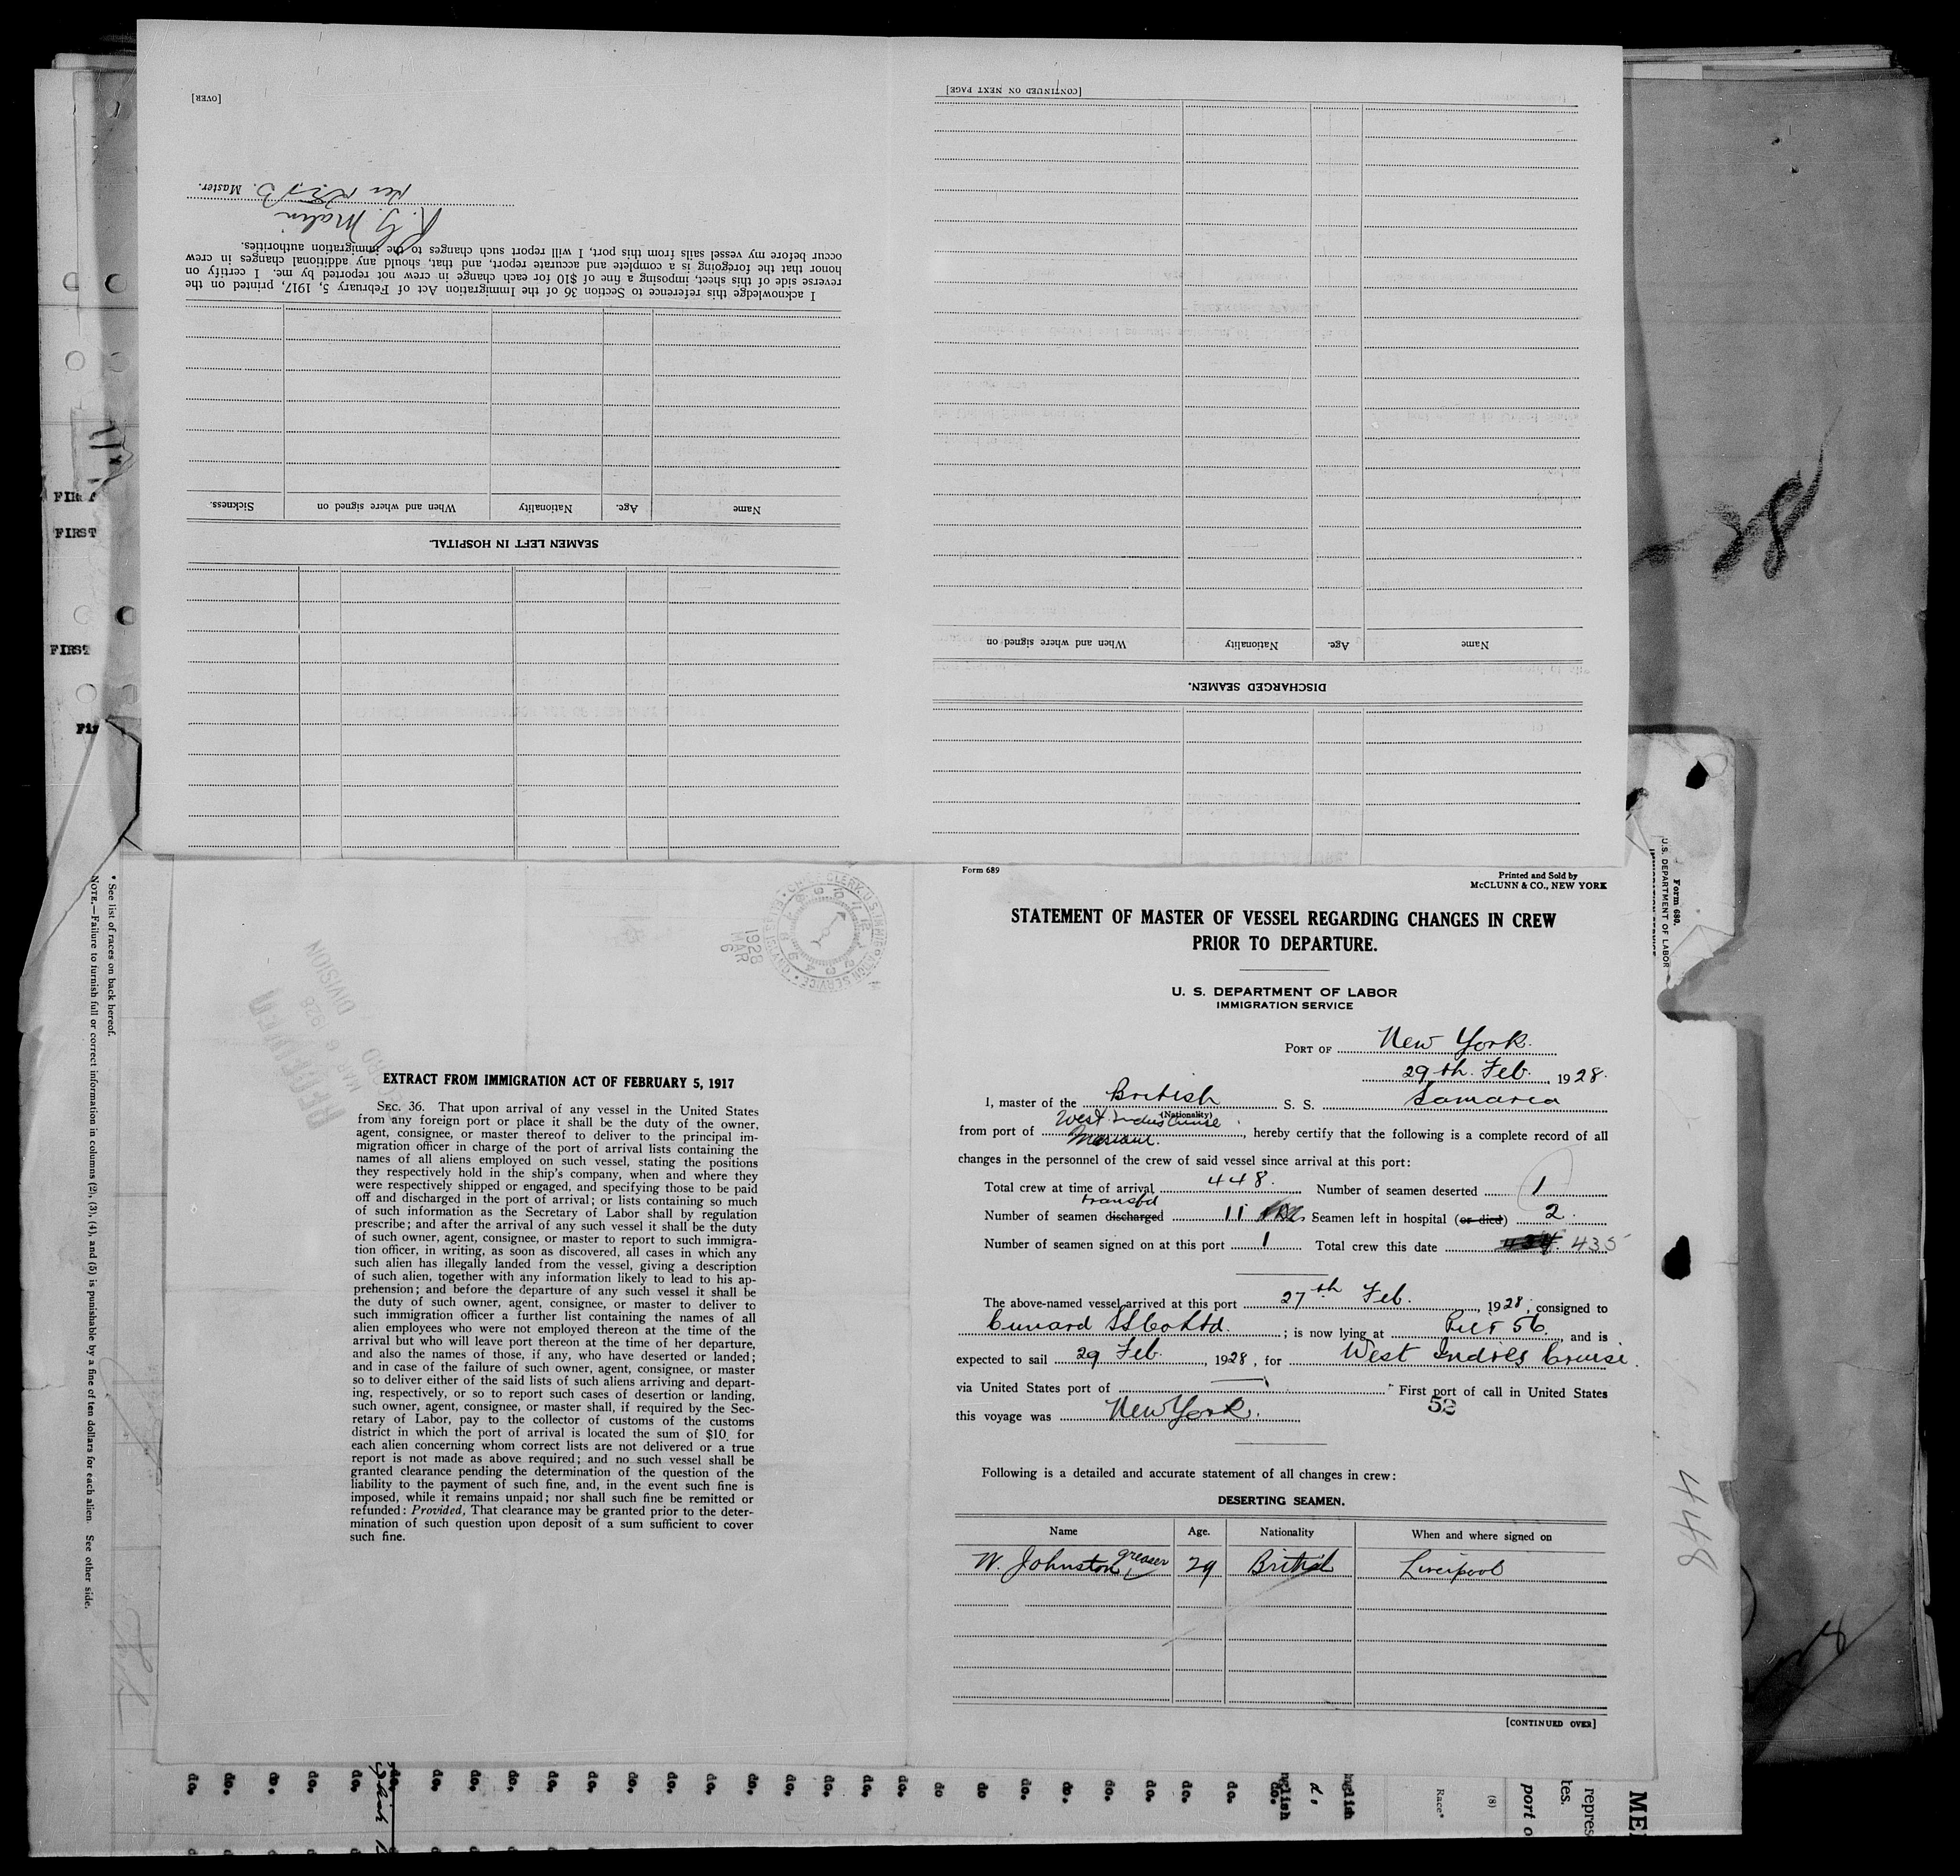 [OVER]
Master.
R. G. Malin
I acknowledge this reference to Section 36 of the Immigration Act of February 5, 1917, printed on the
reverse side of this sheet, imposing a fine of $10 for each change in crew not reported by me. I certify on
honor that the foregoing is a complete and accurate report, and that, should any additional changes in crew
occur before my vessel sails from this port, I will report such changes to the immigration authorities.
Name Age. Nationality When and where signed on Sickness.
SEAMEN LEFT IN HOSPITAL.
[CONTINUED ON NEXT PAGE]
Name Age. Nationality When and where signed on
DISCHARGED SEAMEN.
28
FIRST
FIRST
* See list of races on back hereof.
NOTE.—Failure to furnish full or correct information in columns (2), (3), (4), and (5) is punishable by a fine of ten dollars for each alien. See other side.
CHIEF CLERK, U.S. IMMIGRATION SERVICE
1928
MAR
6
MAR 6 1928
DIVISION
EXTRACT FROM IMMIGRATION ACT OF FEBRUARY 5, 1917
SEC. 36. That upon arrival of any vessel in the United States
from any foreign port or place it shall be the duty of the owner,
agent, consignee, or master thereof to deliver to the principal im-
migration officer in charge of the port of arrival lists containing the
names of all aliens employed on such vessel, stating the positions
they respectively hold in the ship's company, when and where they
were respectively shipped or engaged, and specifying those to be paid
off and discharged in the port of arrival; or lists containing so much
of such information as the Secretary of Labor shall by regulation
prescribe; and after the arrival of any such vessel it shall be the duty
of such owner, agent, consignee, or master to report to such immigra-
tion officer, in writing, as soon as discovered, all cases in which any
such alien has illegally landed from the vessel, giving a description
of such alien, together with any information likely to lead to his ap-
prehension; and before the departure of any such vessel it shall be
the duty of such owner, agent, consignee, or master to deliver to
such immigration officer a further list containing the names of all
alien employees who were not employed thereon at the time of the
arrival but who will leave port thereon at the time of her departure,
and also the names of those, if any, who have deserted or landed;
and in case of the failure of such owner, agent, consignee, or master
so to deliver either of the said lists of such aliens arriving and depart-
ing, respectively, or so to report such cases of desertion or landing,
such owner, agent, consignee, or master shall, if required by the Sec-
retary of Labor, pay to the collector of customs of the customs
district in which the port of arrival is located the sum of $10 for
each alien concerning whom correct lists are not delivered or a true
report is not made as above required; and no such vessel shall be
granted clearance pending the determination of the question of the
liability to the payment of such fine, and, in the event such fine is
imposed, while it remains unpaid; nor shall such fine be remitted or
refunded: Provided, That clearance may be granted prior to the deter-
mination of such question upon deposit of a sum sufficient to cover
such fine.
Form 689
Printed and Sold by
McCLUNN & CO., NEW YORK
STATEMENT OF MASTER OF VESSEL REGARDING CHANGES IN CREW
PRIOR TO DEPARTURE.
U. S. DEPARTMENT OF LABOR
IMMIGRATION SERVICE
PORT OF New York.
29th. Feb. 1928.
I, master of the British S. S. Samaria
(Nationality)
West Indies Cruise
from port of , hereby certify that the following is a complete record of all
changes in the personnel of the crew of said vessel since arrival at this port:
Total crew at time of arrival 448. Number of seamen deserted 1
transfd
Number of seamen discharged 11 Seamen left in hospital (or died) 2.
Number of seamen signed on at this port 1 Total crew this date 434 435
The above-named vessel arrived at this port 27th Feb. , 1928, consigned to
Cunard SS Co Ltd. ; is now lying at Pier 56. , and is
expected to sail 29 Feb. , 1928, for West Indies Cruise.
via United States port of — First port of call in United States
this voyage was New York.
52
Following is a detailed and accurate statement of all changes in crew:
DESERTING SEAMEN.
Name Age. Nationality When and where signed on
W. Johnston greaser 29 British Liverpool
[CONTINUED OVER]
Form 680.
U.S. DEPARTMENT OF LABOR
448
do. do. do. do. do. do. do. do. do. do. do. do. do. do. do. do. do. do do do. do. do. do. do. do. do.
Race*
(8)
port o
tes.
repres